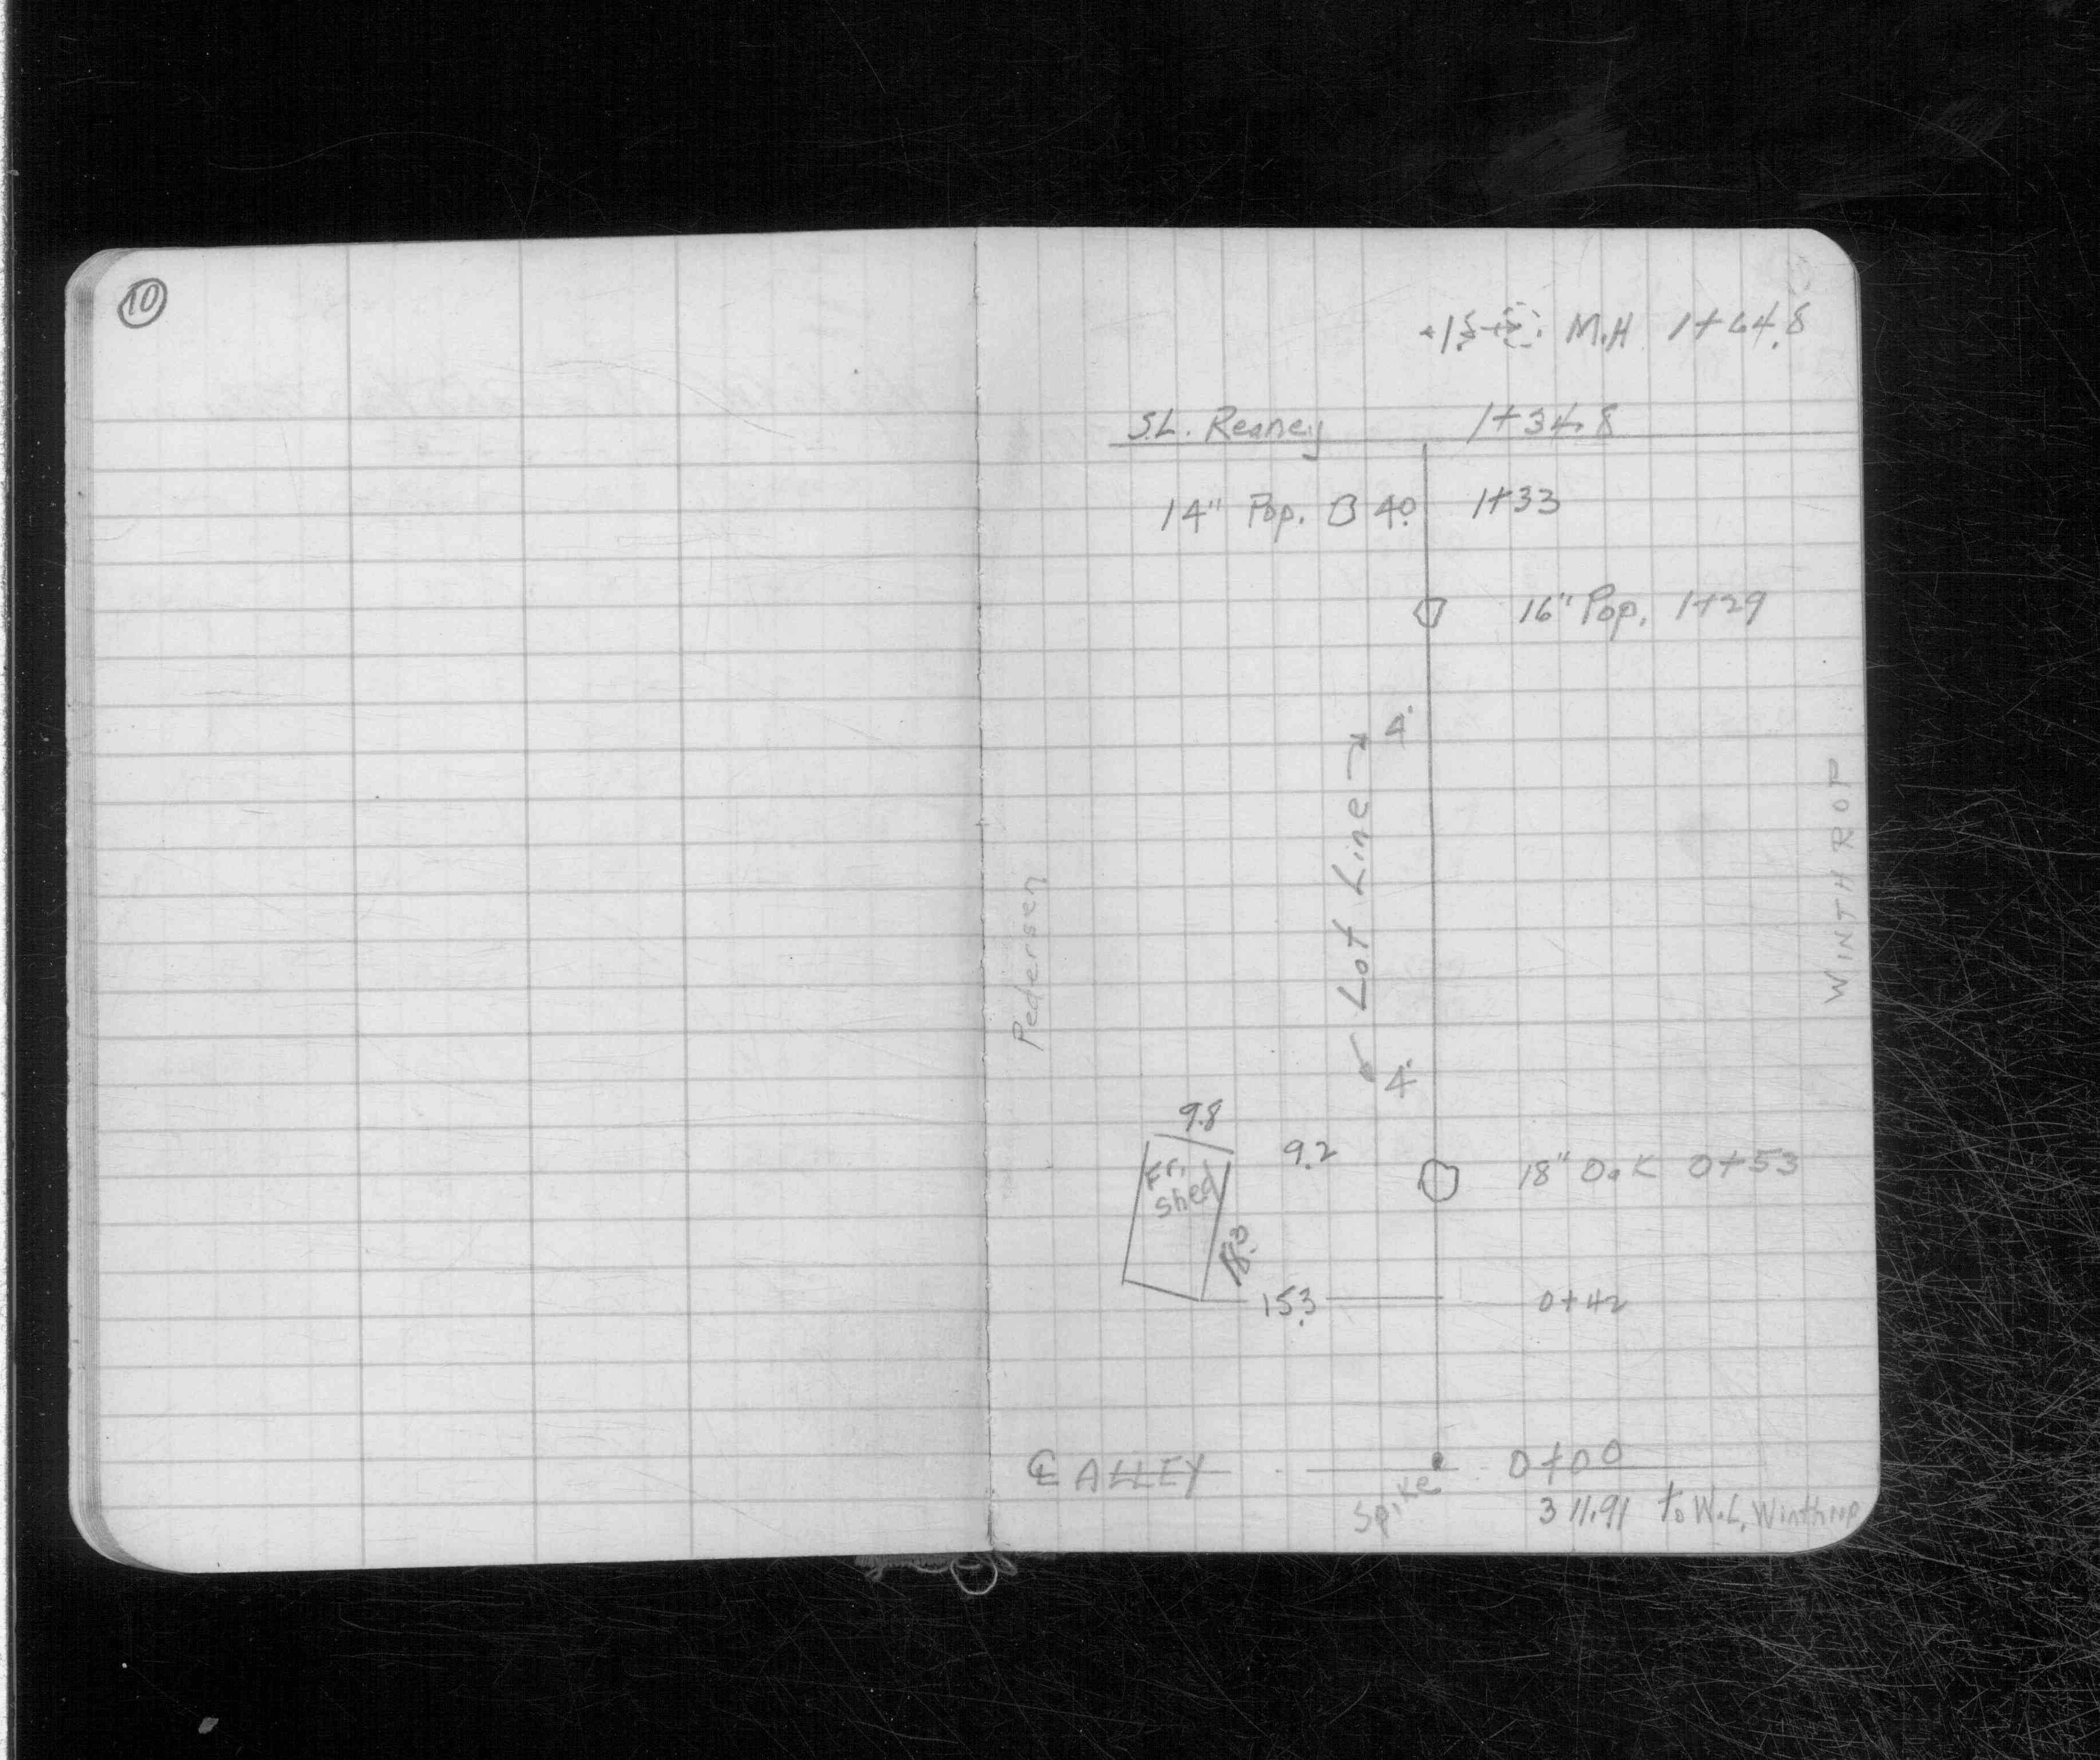 10
M.H 1+64.8
S.L. Reaney 1+34.8
14" Pop. 4.0 1+33
16" Pop. 1+29
4'
Lot Line
4'
Pedersen
WINTHROP
9.8
Fr. shed
9.2
18" Oak 0+53
15.3
0+42
℄ ALLEY
Spike
0+00
311.91 to W.L. Winthrop